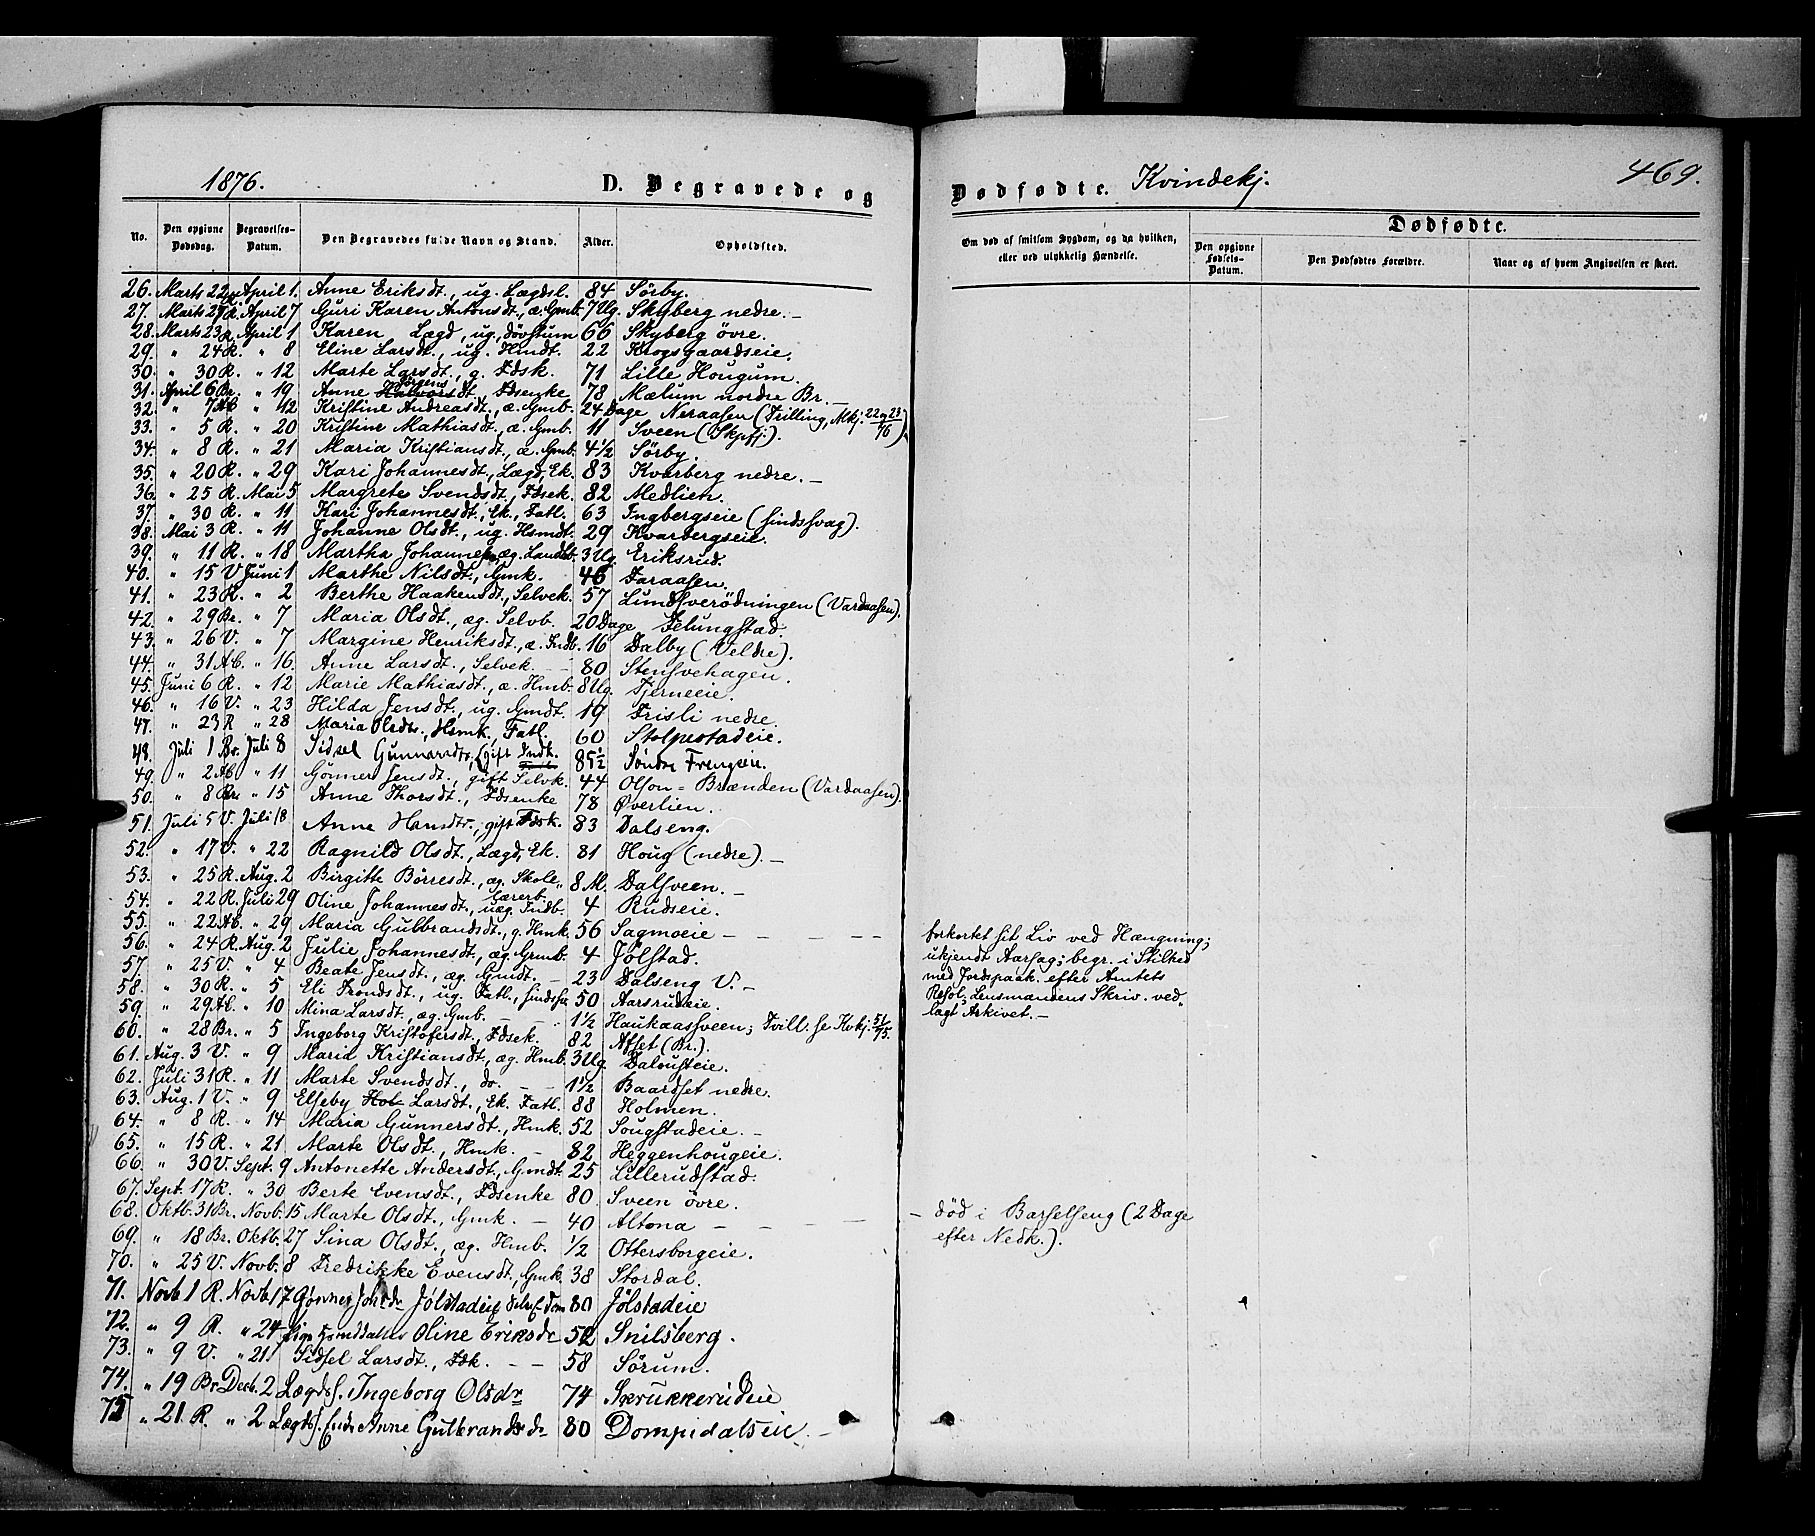 1876. D. Begravede og
No. Den opgivne Dødsdag. Begravelses-Datum. Den Begravedes fulde Navn og Stand. Alder. Opholdsted.
26. Marts 22 April 1. Anne Eriksdt., ug. Lægdsl. 84 Sörby.
27. Marts 27 R. April 7 Guri Karen Antonsdt., æ. Gmb. 7 Ug. Skyberg nedre. –
28. Marts 23 R. April 1 Karen Lægd, ug. døvstum 66 Skyberg övre.
29. " 24 R. " 8 Eline Larsdt., ug. Hmdt. 22 Krogsgaardseie.
30. " 30 R. " 12 Marte Larsdt., g. Fdsk. 71 Lille Hougum.
31. April 6 Br. " 19 Anne Halvorsdt. Jörgens Fdsenke 78 Mælum nordre Br. –
32. " 7 Ab " 12 Kristine Andreasdt., æ. Gmb. 24 Dage Neraasen (Trilling, Mkj. 22 og 23/76).
33. " 5 R. " 20 Kristine Mathiasdt., æ. Gmb. 11 Sveen (Skpsfj.).
34. " 8 R. " 21 Maria Kristiansdt., æ. Gmb. 4 1/2 Sörby.
35. " 20 R. " 29 Kari Johannesdt., Lægd, Ek. 83 Kvarberg nedre. –
36. " 25 R. Mai 5 Margrete Svendsdt., Fdsek. 82 Medlien.
37. " 30 R. " 11 Kari Johannesdt., Ek., Fatl. 63 Ingbergseie (sindssvag).
38. Mai 3 R. " 11 Johanne Olsdt., ug. Hsmdt. 29 Kvarbergseie.
39. " 11 R. " 18 Martha Johannes, æg. Landb. 3 Ug. Eriksrud.
40. " 15 V Juni 1 Marthe Nilsdt., Gmk. 46 Faraasen.
41. " 23 R. " 2 Berthe Haakensdt., Selvek. 57 Lundsverödningen (Vardaasen).
42. " 29 Br. " 7 Maria Olsdt., æg. Selvb. 20 Dage Jelungstad.
43. " 26 V. " 7 Margine Henriksdt., æ. Indb. 16 Dalby (Veldre).
44. " 31 Ab. " 16. Anne Larsdt., Selvek. – 80 Stensvehagen.
45. Juni 6 R. " 12 Marie Mathiasdt., æ. Hmb. 8 Ug. Tjerneeie.
46. " 16 V. " 23 Hilda Jensdt., ug. Gmdt. 19 Frisli nedre.
47. " 23 R " 28 Maria Olsdtr., Hsmk., Fatl. 60 Stolpestadeie.
48. Juli 1 Br. Juli 8 Sidsel Gunnarsdtr, (gift Indk. 85 1/2 Söndre Frengseie.
49. " 2 Ab " 11 Gönner Jensdt., gift Selvk. 44 Olson-Brænden (Vardaasen).
50. " 8 Br " 15 Anne Thorsdt., Fdsenke 78 Øverlien.
51. Juli 5 V. Juli 18 Anne Hansdtr., gift Fdsk. 83 Dalseng.
52. " 17 V. " 22 Ragnild Olsdt., Lægd, Ek. 81 Houg (nedre). –
53. " 25 R. Aug. 2 Birgitte Börresdt., æg. Skole- 8 M. Dalsveen. –
54. " 22 R. Juli 29 Oline Johannesdt., uæg. Indb. lærerb. 4 Rudseie.
55. " 22 Ab. " 29 Maria Gulbrandsdt., g. Hmk. 56 Sagmoeie – – – –
56. " 24 R. Aug. 2 Julie Johannesdt., æg. Grmb. 4 Jölstad.
57. " 25 V " 4 Beate Jensdt., æg. Gmdt. – 23 Dalseng V. –
58. " 30 R. " 5 Eli Frondsdt., ug. Fatl., sindssv. 50 Aarsrudeie.
59. " 29 Ab. " 10 Mina Larsdt., æg. Gmb. – – 1 1/2 Haukaassveen; Tvill. se Kvkj. 51/75.
60. " 28 Br. " 5 Ingeborg Kristofersdt., Fdsek. 82 Afset (Br.).
61. Aug. 3 V. " 9 Maria Kristiansdt., æg. Hmb. 3 Ug. Dalousteie.
62. Juli 31 R. " 11 Marte Svendsdt., do. – – 1 1/2 Baardset nedre.
63. Aug. 1 V. " 9 Elseby Hol Larsdt., Ek. Fatl. 88 Holmen.
64. " 8 R. " 14 Maria Gunnersdt., Hmk. 52 Sougstadeie. –
65. " 15 R. " 21 Marte Olsdt., Hmk. – 82 Heggenhougeie.
66. " 30 V. Sept. 9 Antonette Andersdt., Gmdt. 25 Lillerudstad.
67. Sept. 17 R. " 30 Berte Evensdt., Fdsenke 80 Sveen övre.
68. Oktb. 31 Br. Novb. 15 Marte Olsdt., Gmk. – 40 Altona – – – –
69. " 18 Br. Oktb. 27 Sina Olsdt., æg. Hmb. 1/2 Ottersborgeie.
70. " 25 V. Novb. 8 Fredrikke Evensdt., Gmk. 38 Stordal.
71. Novb 1 R. Novb. 17 Gønner Johsdr Jölstadeie 80 Jölstadeie
72. " 9 R. " 24 Hsmddatter Oline Eriksdr 52 Snilsberg.
73. " 9 V. " 21 Sidsel Larsdt., Fdk. – – 58 Sörum.
74. " 19 Br. Decb. 2 Lægds. Ingeborg Olsdr 74 Skrukkerudeie
75 " 21. R. " 2 Lægds. Enke Anne Gulbrandsdr 80 Dompidalseie –
Dødfødte. Kvindekj. 469.
Om død af smitsom Sygdom, og da hvilken, eller ved ulykkelig Hændelse. Dødfødte.
Den opgivne Fødsels-Datum. Den Dødfødtes Forældre. Naar og af hvem Angivelsen er skeet.
forkortet sit Liv ved Hængning;
ukjendt Aarsag; begr. i Stilhed
med Jordspaak. efter Amtets
Resol. Lensmandens Skriv. ved-
lagt Arkivet. –
– død i Barselseng (2 Dage
efter Nedk.).